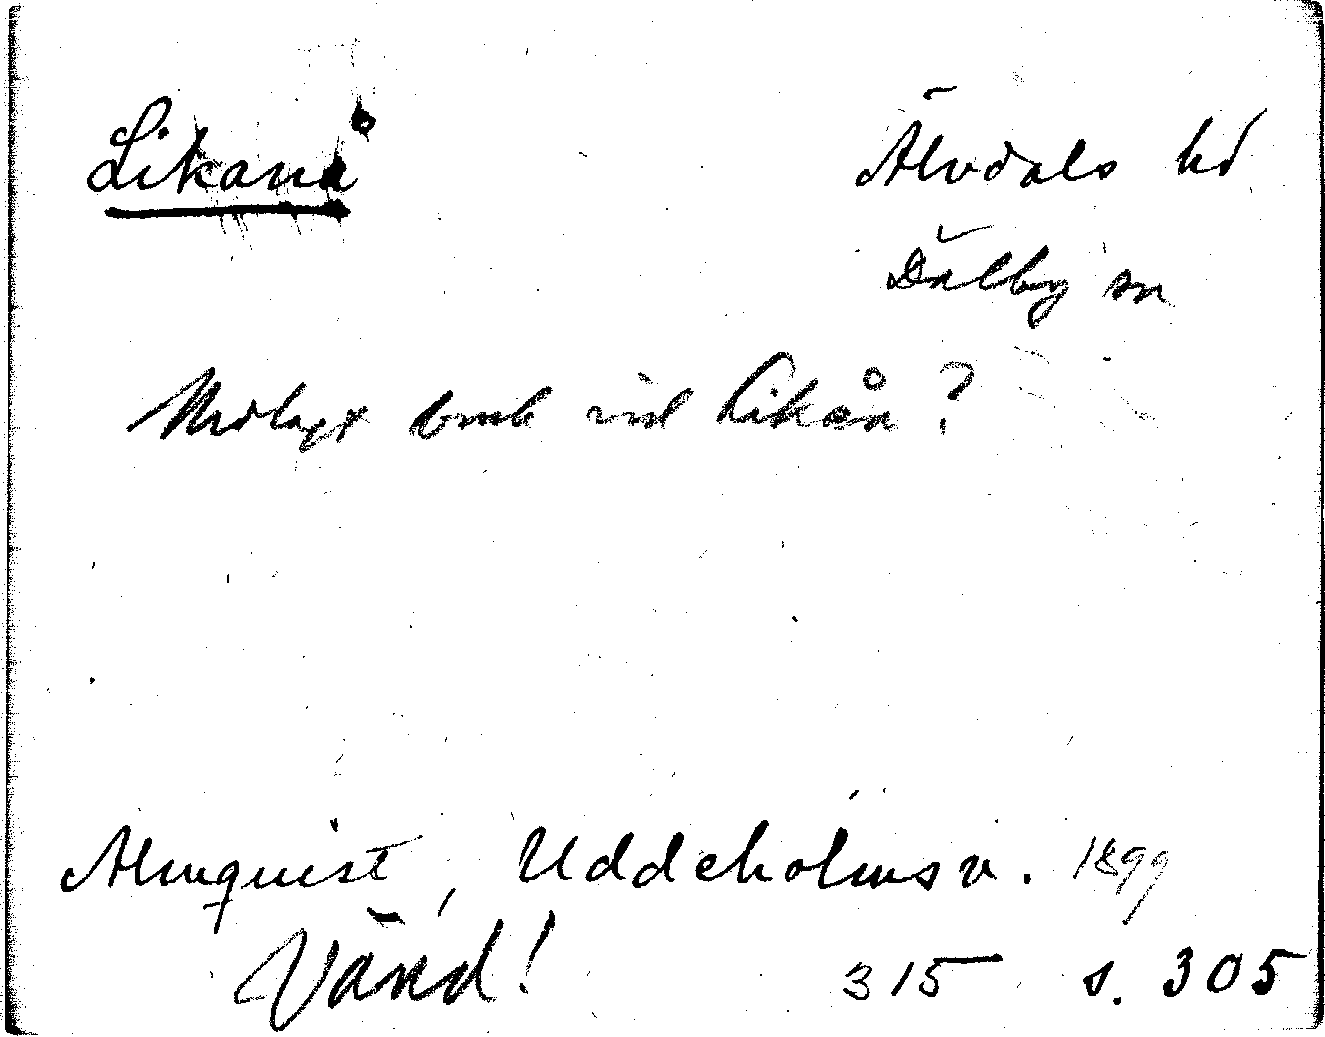 Likanå
Älvdals hd
Dalby sn
Nedlagt bruk vid Likån?
Almquist, Uddeholmsv. 1899
Vänd! 315 s. 305